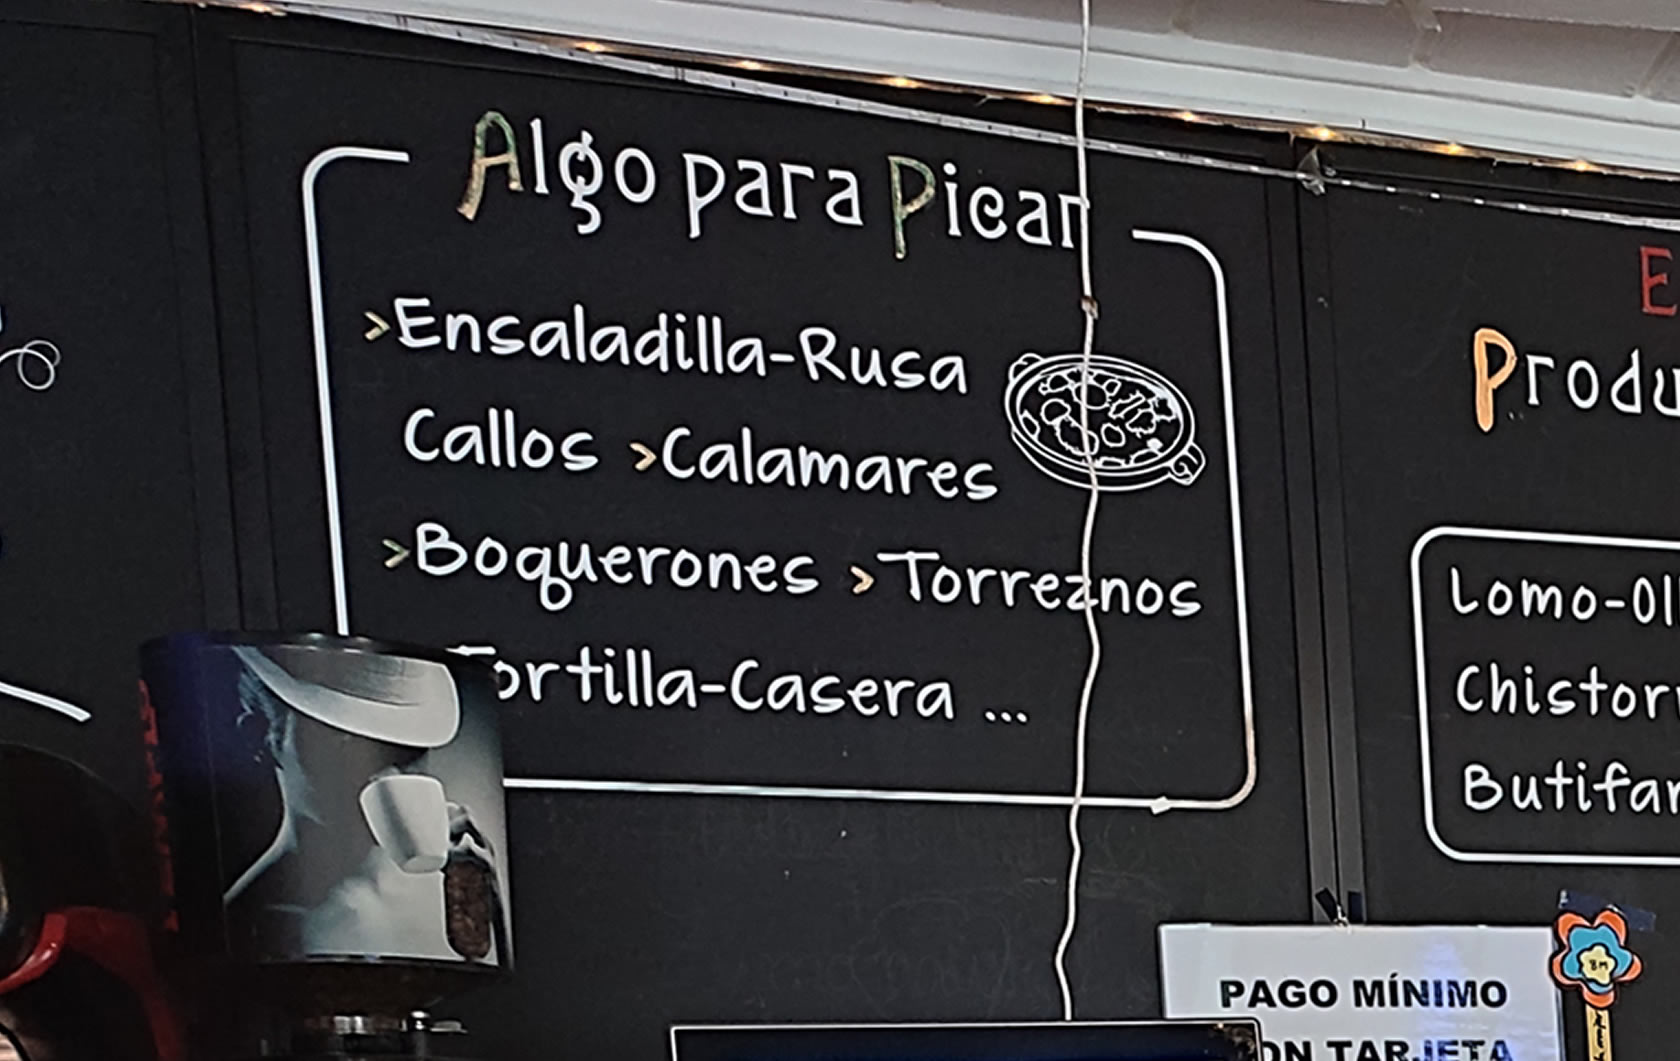 Algo para Picar
>Ensaladilla-Rusa
Callos >Calamares
>Boquerones >Torreznos
Tortilla-Casera ...
E
Produ
Lomo-Ol
Chistor
Butifar
PAGO MÍNIMO
ON TARJETA
BM